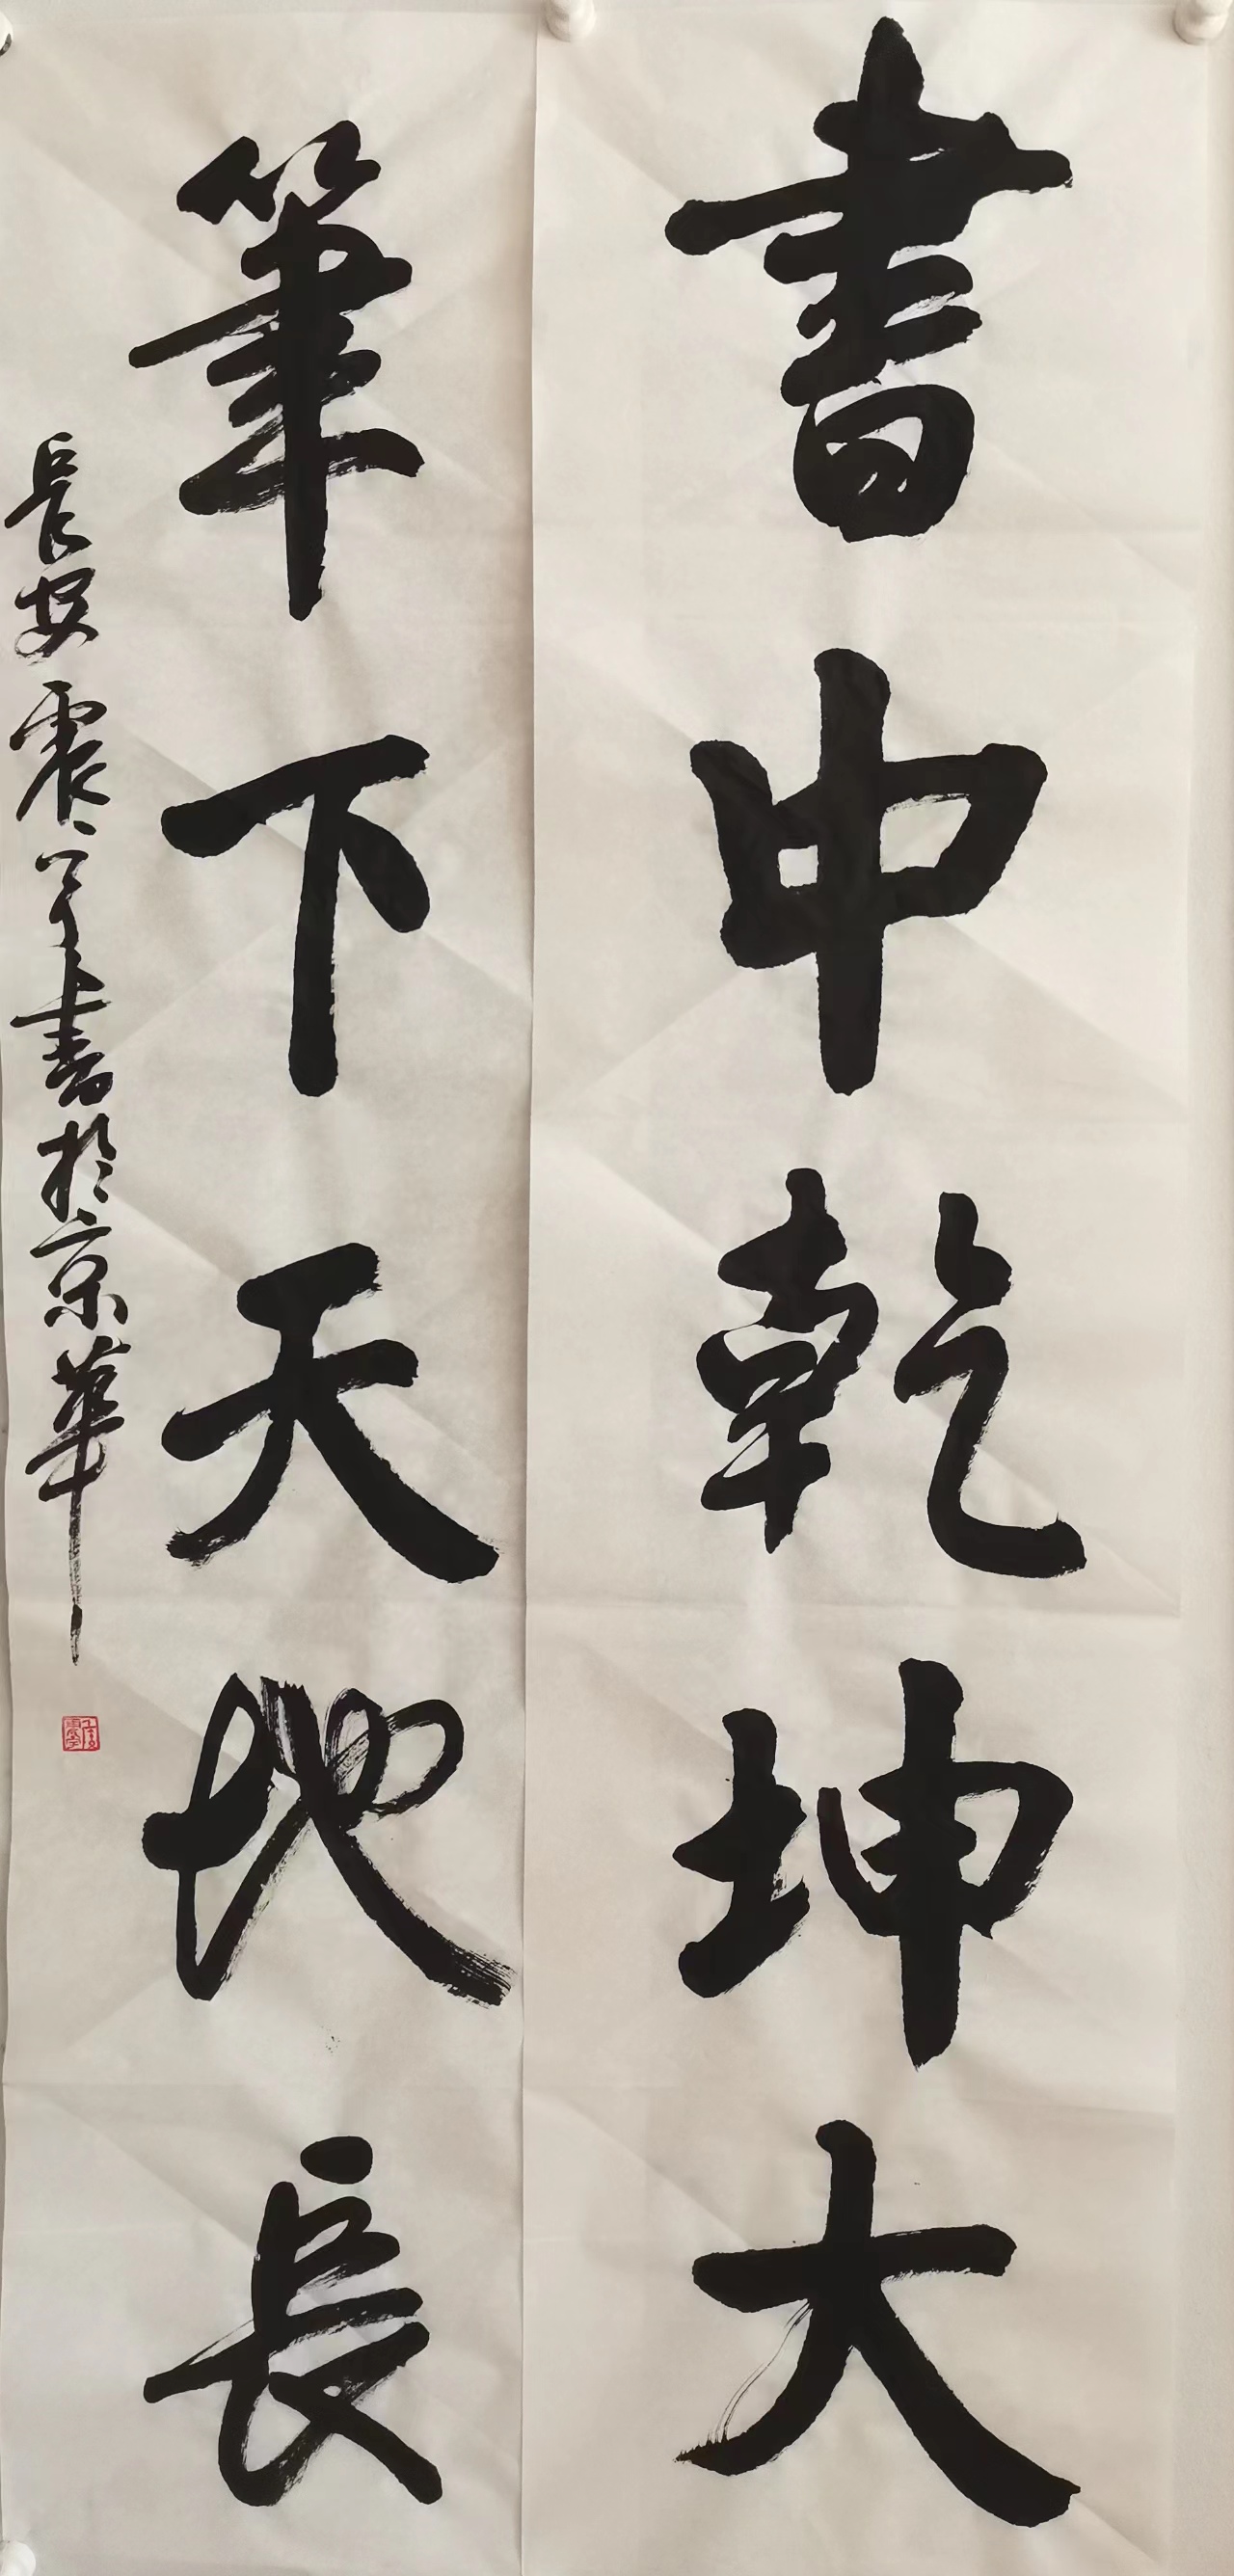 書中乾坤大
筆下天地長
長安震宇書於京華